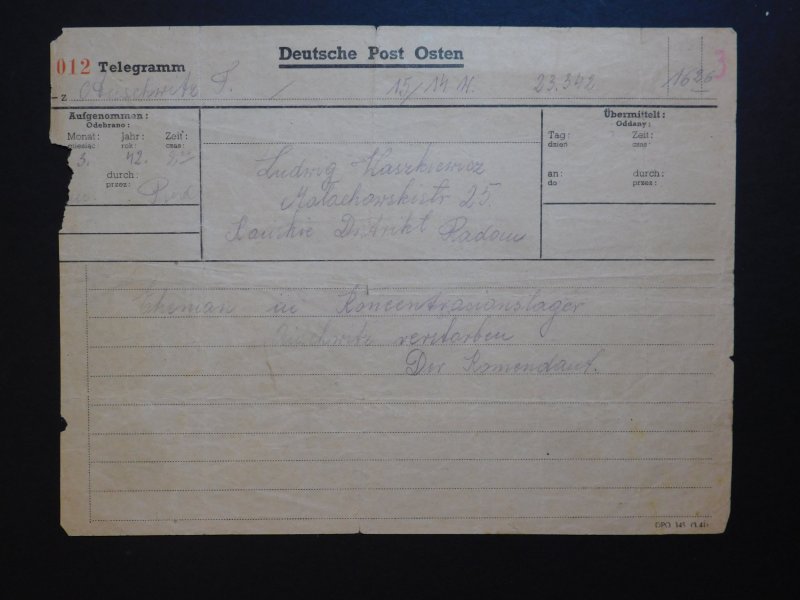 012 Telegramm
Deutsche Post Osten
3
Auschwitz T. / 15/14 W. 23.342 1626
Aufgenommen:
Odebrano:
Monat: Jahr: Zeit:
miesiąc rok: czas:
3. 42.
durch:
przez:
Ludwig Kaszkiewicz
Malachowskistr 25.
Distrikt Radom
Übermittelt:
Oddany:
Tag: Zeit:
dzień czas:
an: durch:
do przez:
Eheman im Koncentrasionslager
Auschwitz verstorben
Der Komendant.